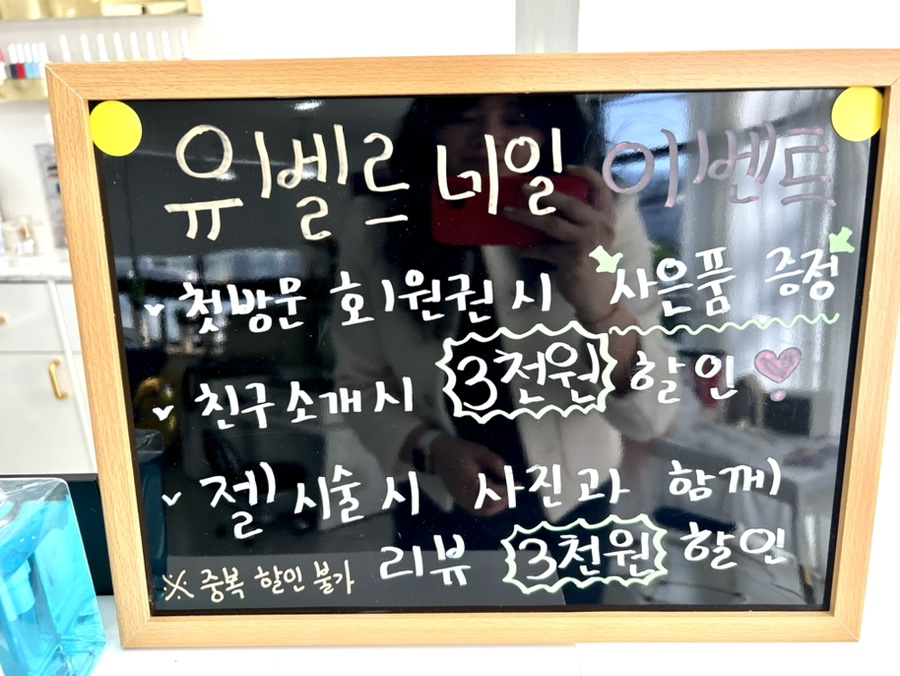 유벨르 네일 이벤트
첫방문 회원권 시 사은품 증정
친구소개시 3천원 할인
젤 시술 시 사진과 함께
리뷰 3천원 할인
※ 중복 할인 불가